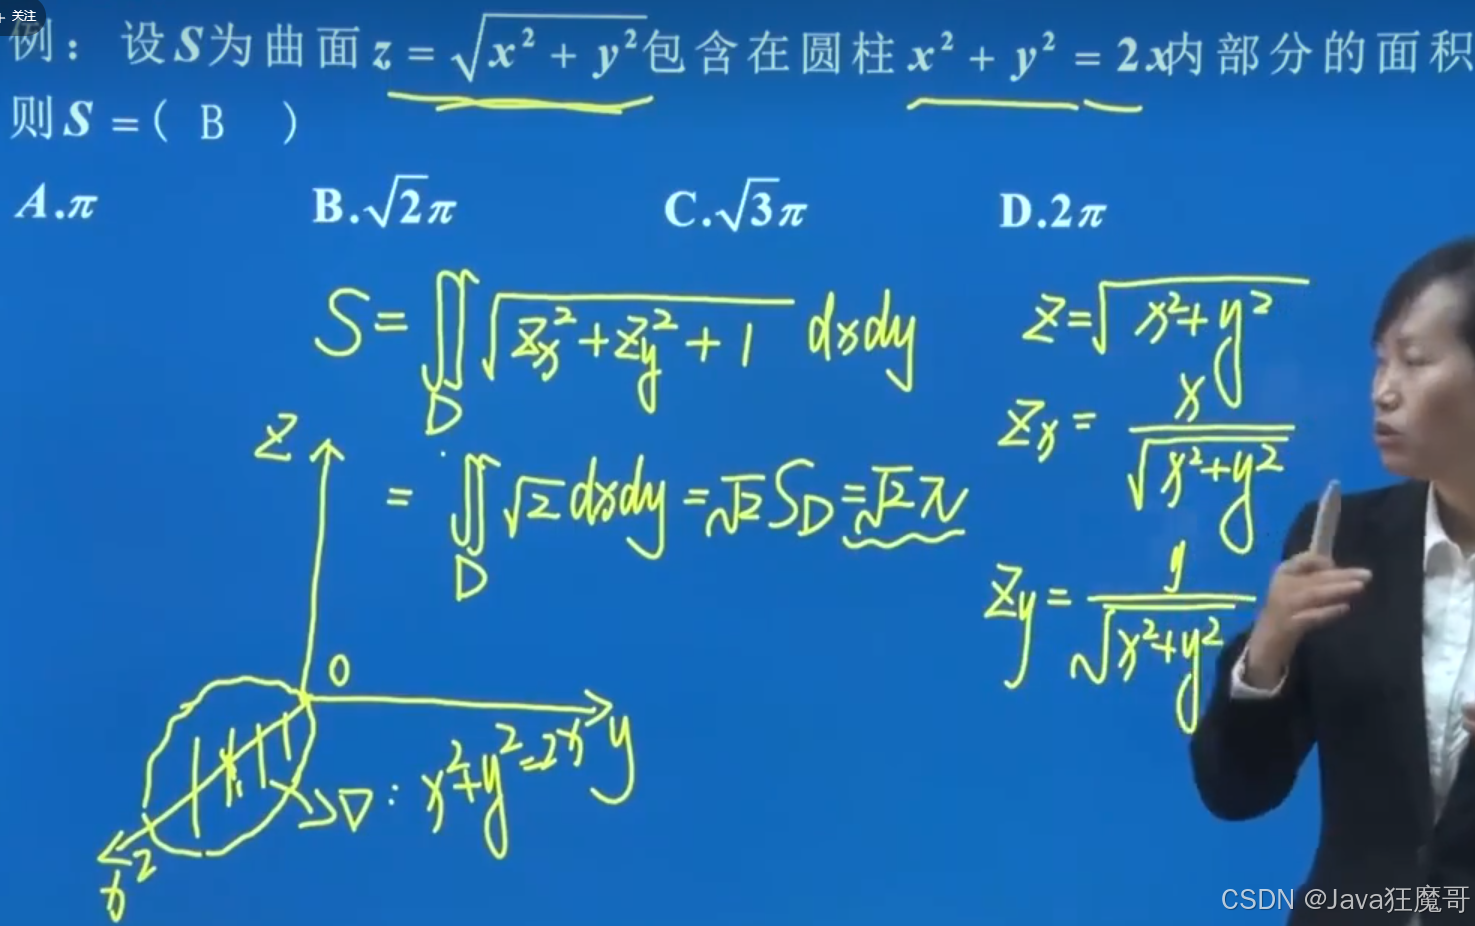 + 关注
例：设S为曲面 z = √(x² + y²) 包含在圆柱 x² + y² = 2x 内部分的面积
则 S = ( B )
A.π B.√2π C.√3π D.2π
S = ∬_D √(z_x² + z_y² + 1) dxdy
z = √(x² + y²)
z_x = x / √(x² + y²)
= ∬_D √2 dxdy = √2 S_D = √2 π
z_y = y / √(x² + y²)
z
0
y
D: x² + y² = 2x
2
x
CSDN @Java狂魔哥